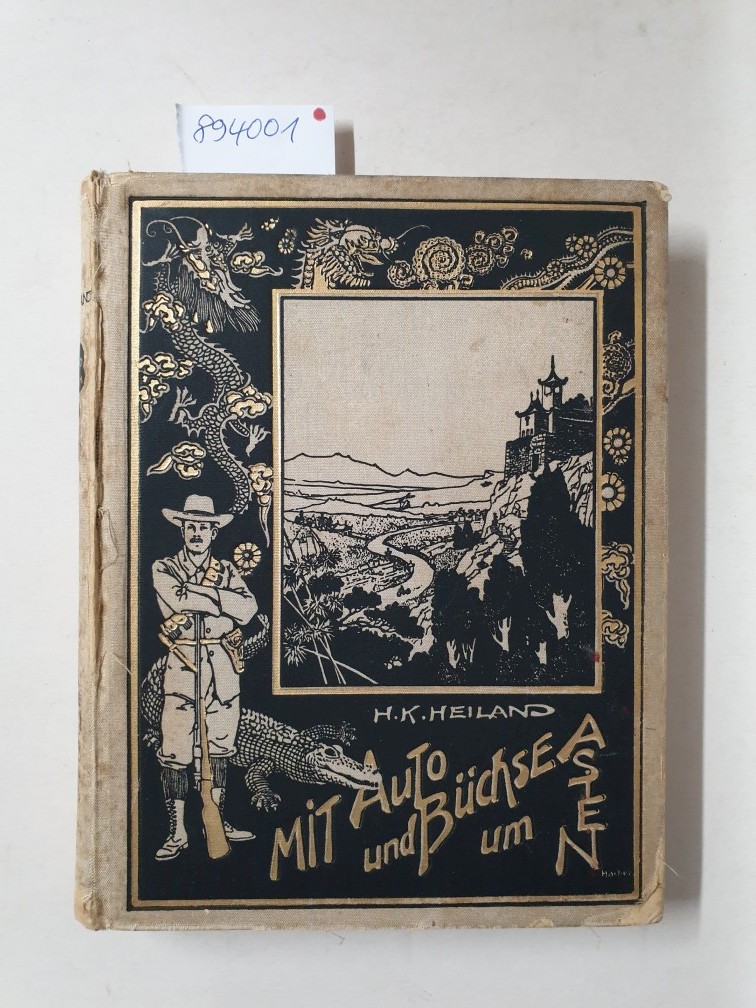 894001
H.K.HEILAND
MiT AUTO
und BÜCHSE
um ASIEN